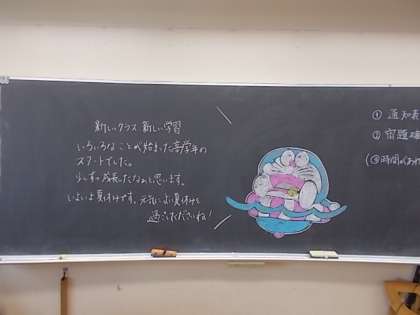 新しいクラス 新しい学習
いろいろなことが始まった高学年の
スタートでした。
少しずつ成長したなぁと思います。
いよいよ夏休みです。元気によい夏休みを
過ごしてくださいね!
① 通知表
② 宿題確
(③時間があれ